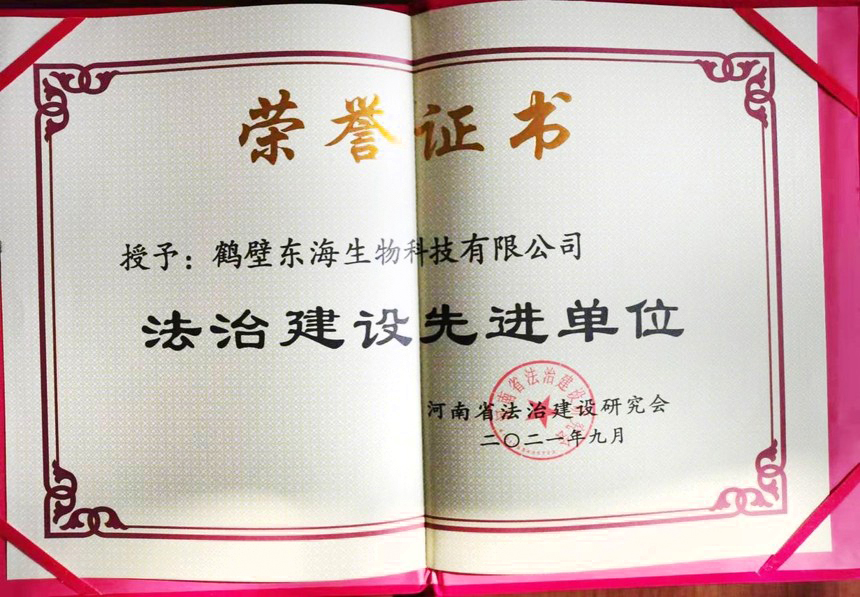 荣誉证书
授予：鹤壁东海生物科技有限公司
法治建设先进单位
河南省法治建设研究会
二〇二一年九月